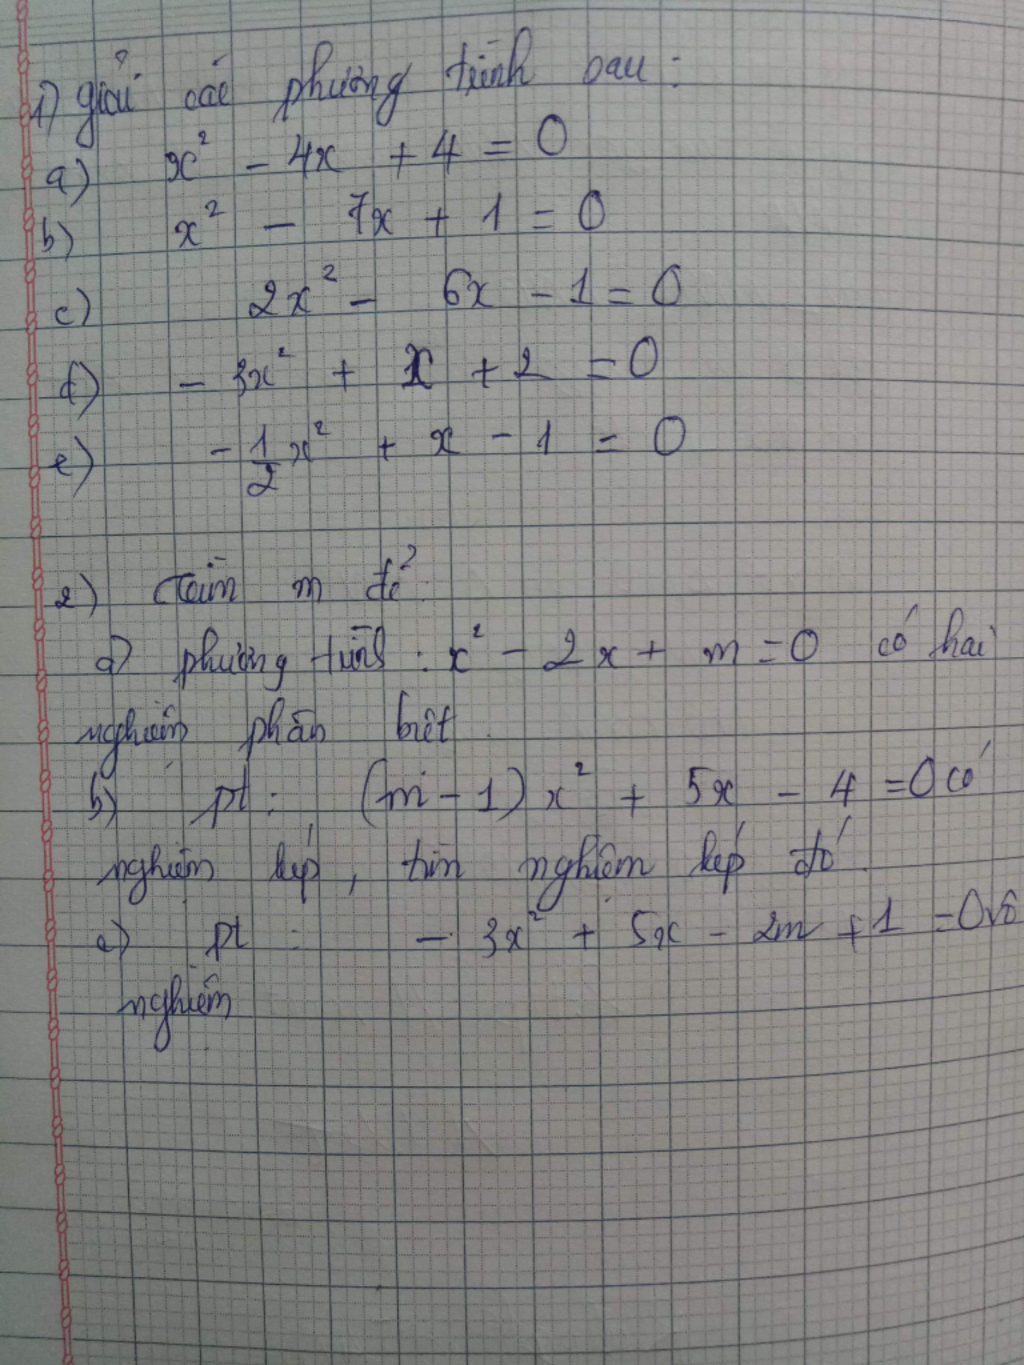 1) giải các phương trình sau :
a) x² - 4x + 4 = 0
b) x² - 7x + 1 = 0
c) 2x² - 6x - 1 = 0
d) - 3x² + x + 2 = 0
e) - 1/2 x² + x - 1 = 0
2) Tìm m để :
a) phương trình : x² - 2x + m = 0 có hai
nghiệm phân biệt.
b) pt : (m - 1) x² + 5x - 4 = 0 có
nghiệm kép, tìm nghiệm kép đó.
c) pt : - 3x² + 5x - 2m + 1 = 0 vô
nghiệm